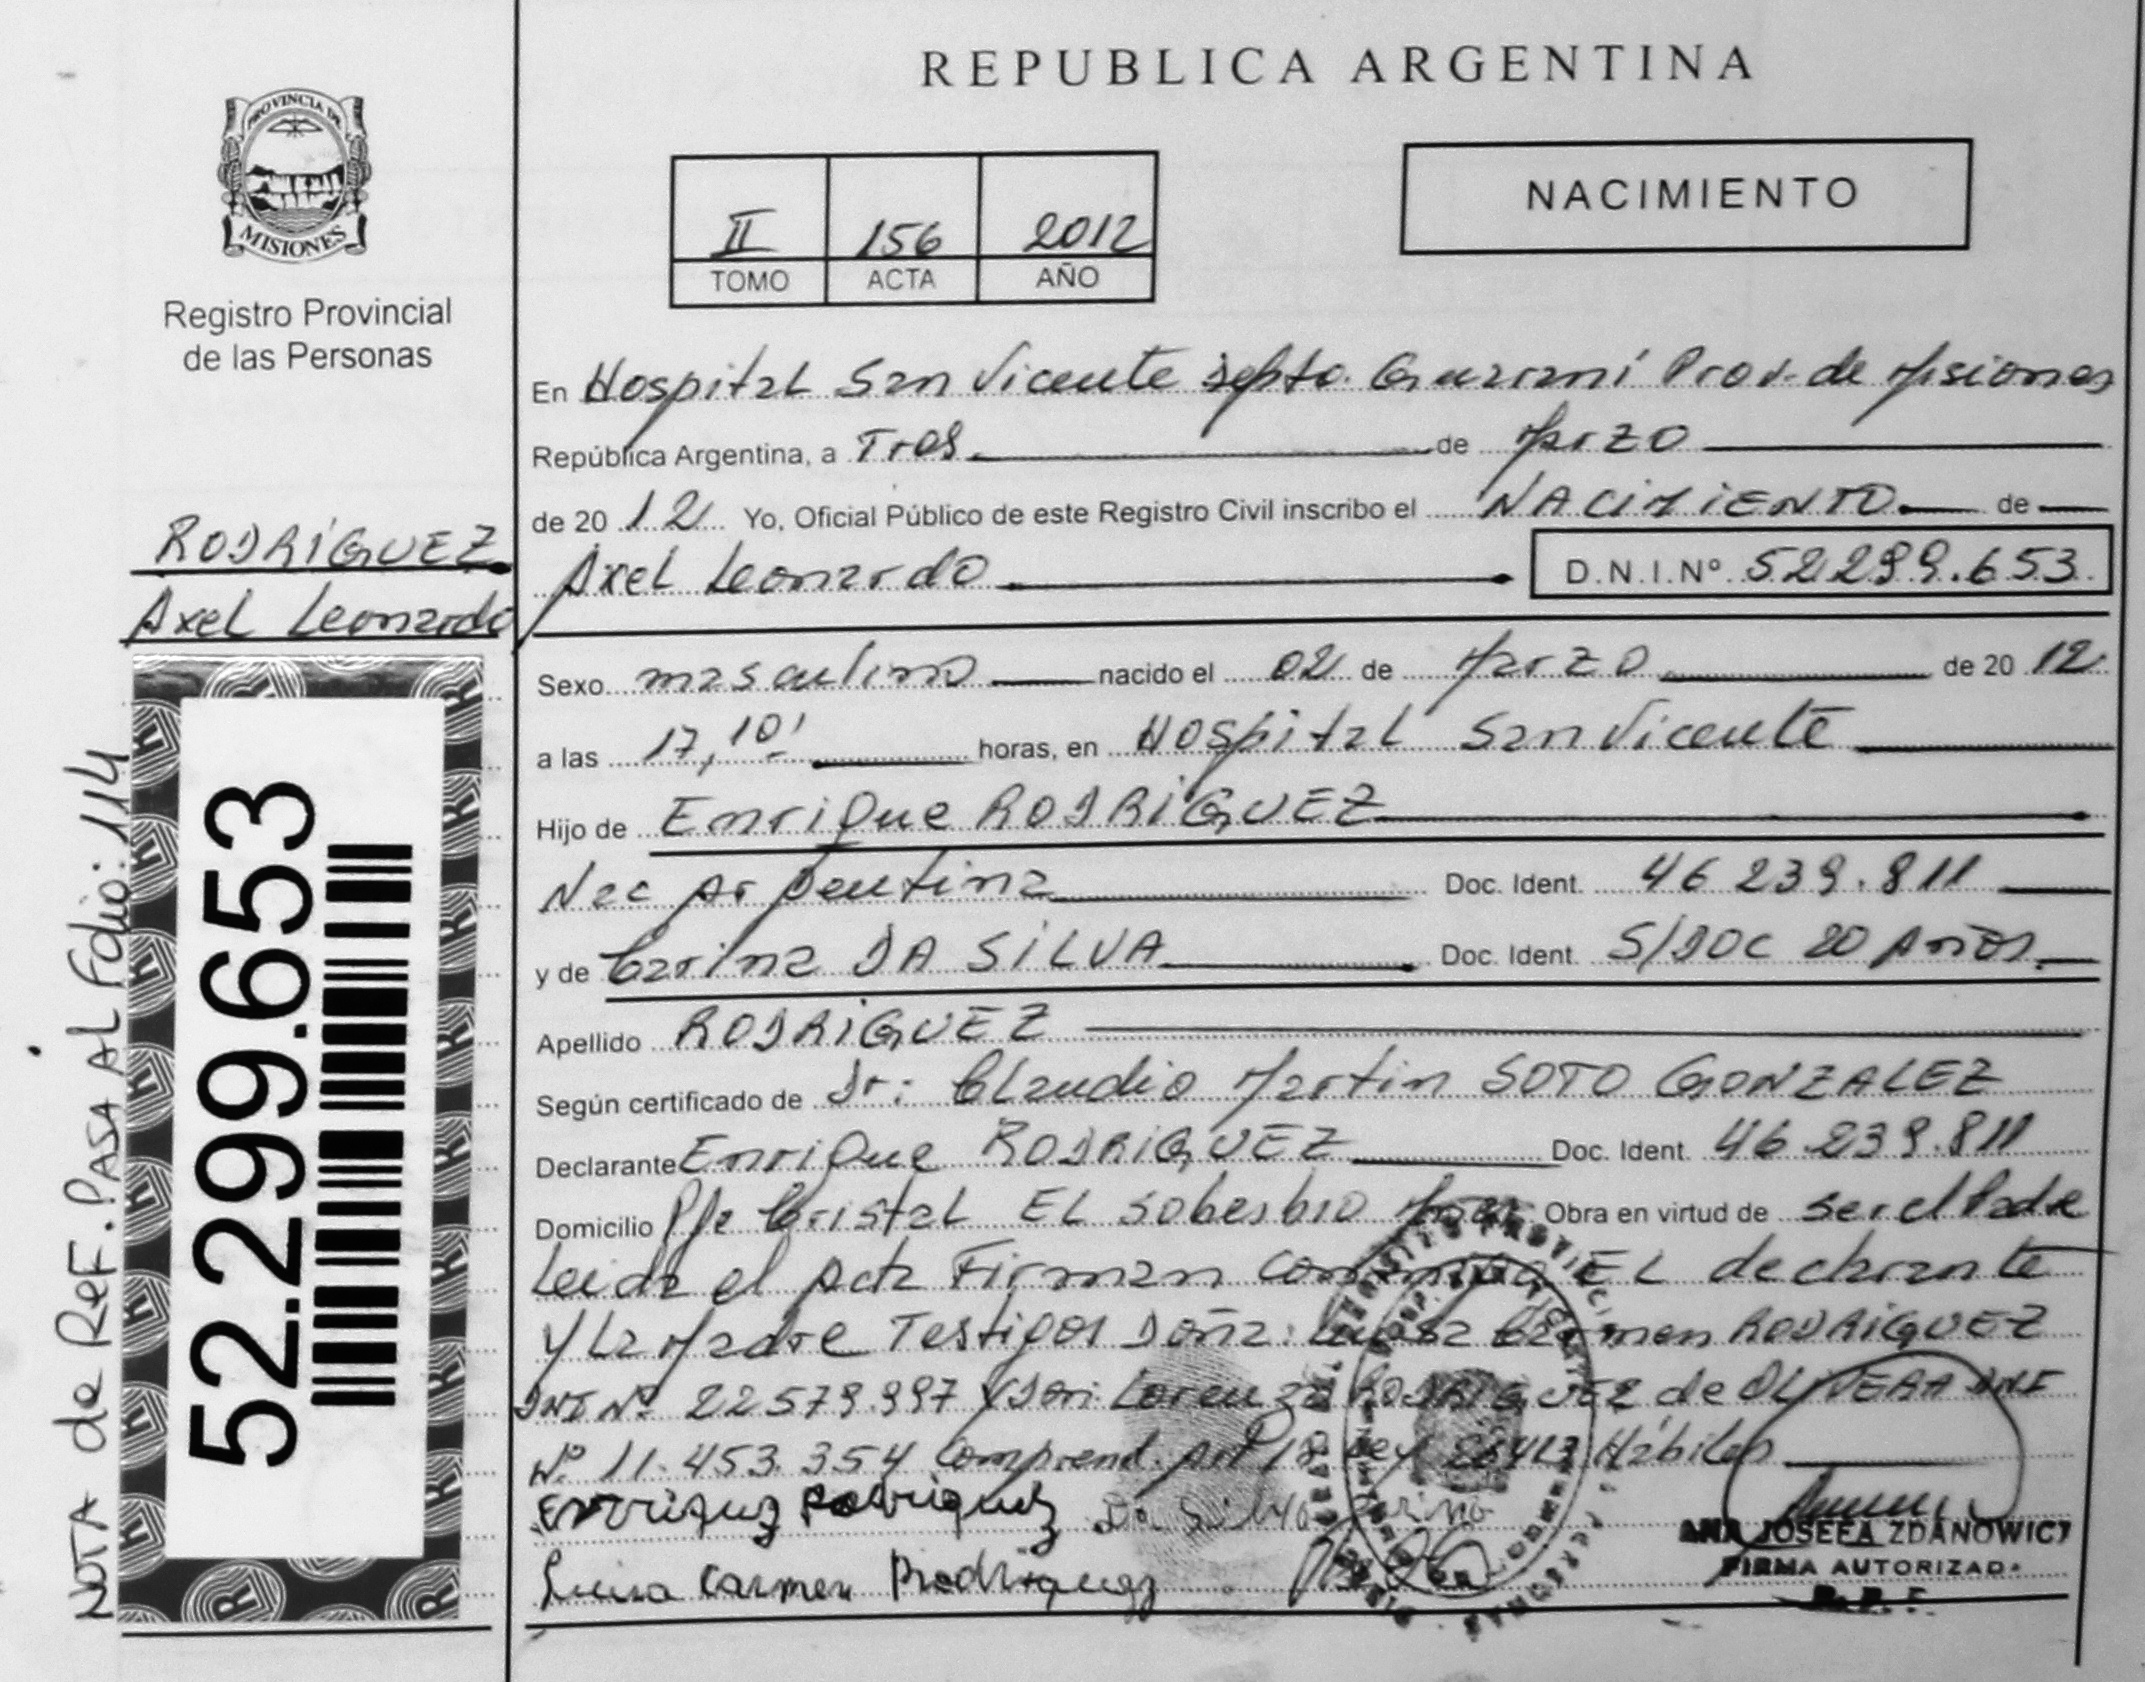 REPUBLICA ARGENTINA
PROVINCIA DE
MISIONES
Registro Provincial
de las Personas
II 156 2012
TOMO ACTA AÑO
NACIMIENTO
RODRIGUEZ
Axel Leonardo
52.299.653
NOTA de Ref. PASA AL Folio: 114
En Hospital San Vicente Depto. Guaraní Prov. de Misiones
República Argentina, a Tres de Marzo
de 20 12 Yo, Oficial Público de este Registro Civil inscribo el NACIMIENTO de
Axel Leonardo D.N.I.Nº 52.299.653
Sexo masculino nacido el 02 de Marzo de 20 12
a las 17,10' horas, en Hospital San Vicente
Hijo de Enrique RODRIGUEZ
Nac Argentina Doc. Ident. 46 239.811
y de Carina DA SILVA Doc. Ident. S/DOC 20 Años
Apellido RODRIGUEZ
Según certificado de Dr: Claudio Martin SOTO GONZALEZ
Declarante Enrique RODRIGUEZ Doc. Ident. 46.239.811
Domicilio Pje Cristal EL Soberbio Obra en virtud de ser el Padre
Leida el Acta Firman conmigo EL declarante
y La Madre Testigos Doña: Luisa Carmen RODRIGUEZ
DNI Nº 22579.997 y Don: Lorenzo RODRIGUEZ de OLIVERA DNI
Nº 11.453.354 Comprend. Art 18 Ley 26413 Hábiles
Enrriquz Rodriquez Da Silva Carina
Luisa Carmen Rodriquez
ANA JOSEFA ZDANOWICZ
FIRMA AUTORIZADA
R.P.P.